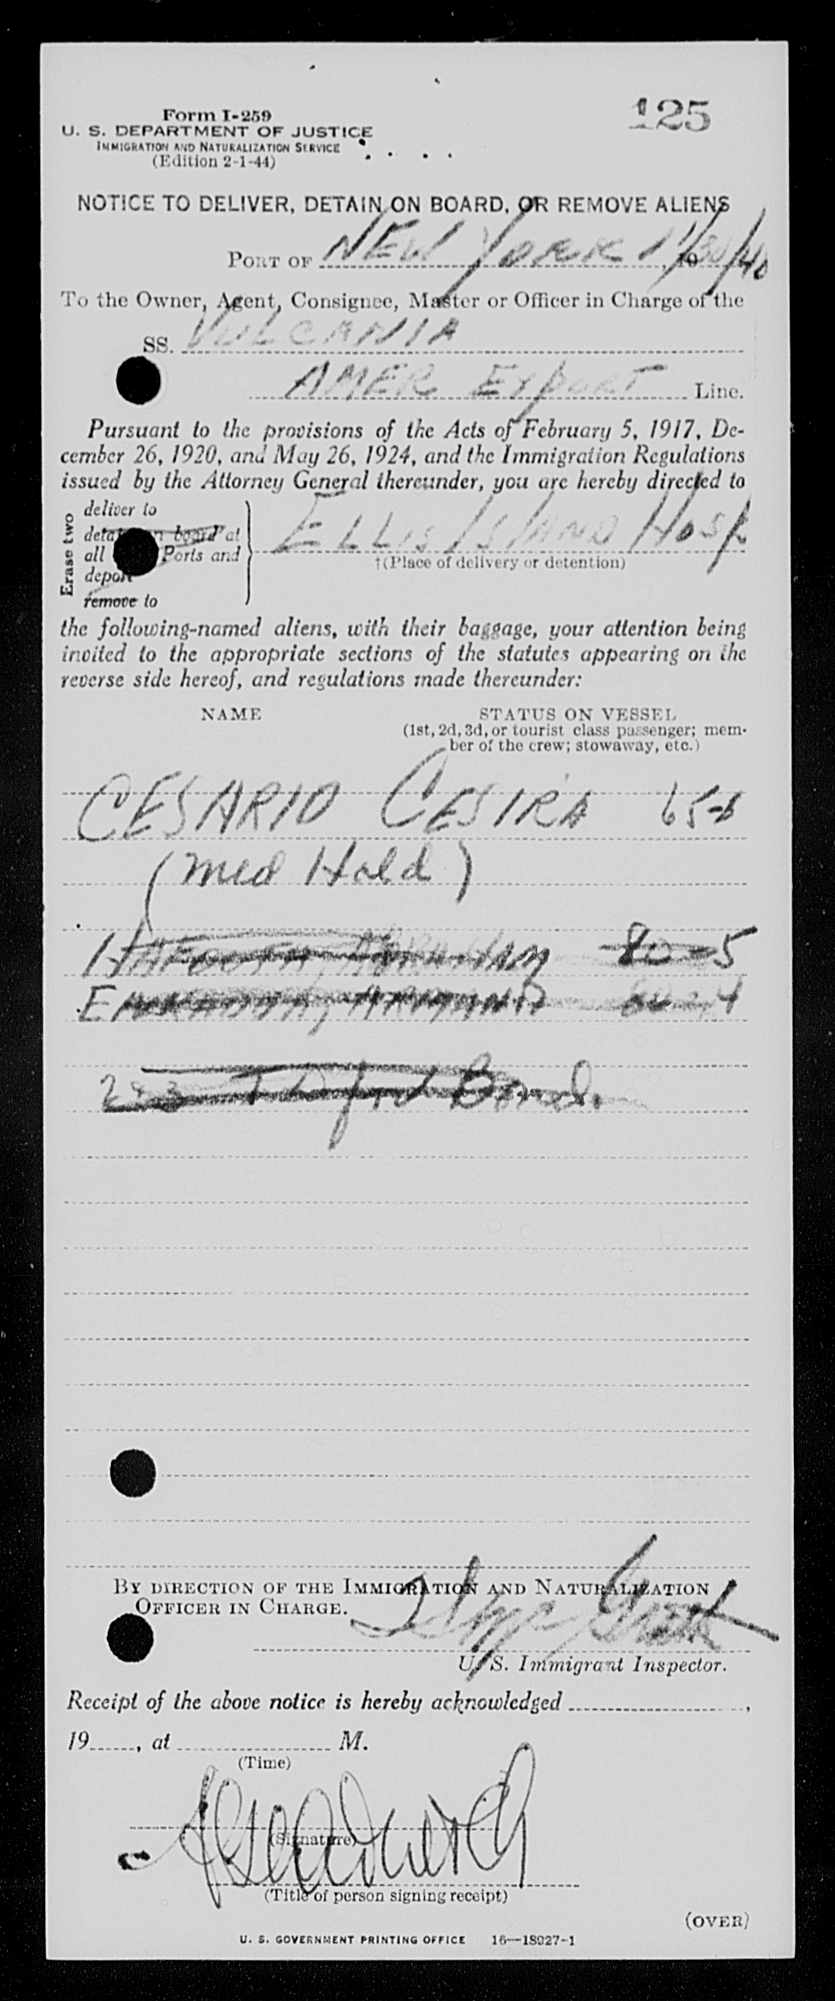 125
Form I-259
U. S. DEPARTMENT OF JUSTICE
IMMIGRATION AND NATURALIZATION SERVICE
(Edition 2-1-44)
NOTICE TO DELIVER, DETAIN ON BOARD, OR REMOVE ALIENS
PORT OF NEW YORK
To the Owner, Agent, Consignee, Master or Officer in Charge of the
SS. VULCANIA
AMER EXPORT Line.
Pursuant to the provisions of the Acts of February 5, 1917, De-
cember 26, 1920, and May 26, 1924, and the Immigration Regulations
issued by the Attorney General thereunder, you are hereby directed to
Erase two
deliver to
board at
all Ports and
deport
remove to
ELLIS ISLAND HOSP
†(Place of delivery or detention)
the following-named aliens, with their baggage, your attention being
invited to the appropriate sections of the statutes appearing on the
reverse side hereof, and regulations made thereunder:
NAME STATUS ON VESSEL
(1st, 2d, 3d, or tourist class passenger; mem-
ber of the crew; stowaway, etc.)
CESARIO CESIRA 65-6
(Med Hold)
ABRAHAM 80-5
Bond.
BY DIRECTION OF THE IMMIGRATION AND NATURALIZATION
OFFICER IN CHARGE.
U. S. Immigrant Inspector.
Receipt of the above notice is hereby acknowledged ,
19 , at M.
(Time)
(Signature)
(Title of person signing receipt)
(OVER)
U. S. GOVERNMENT PRINTING OFFICE 16—18027-1